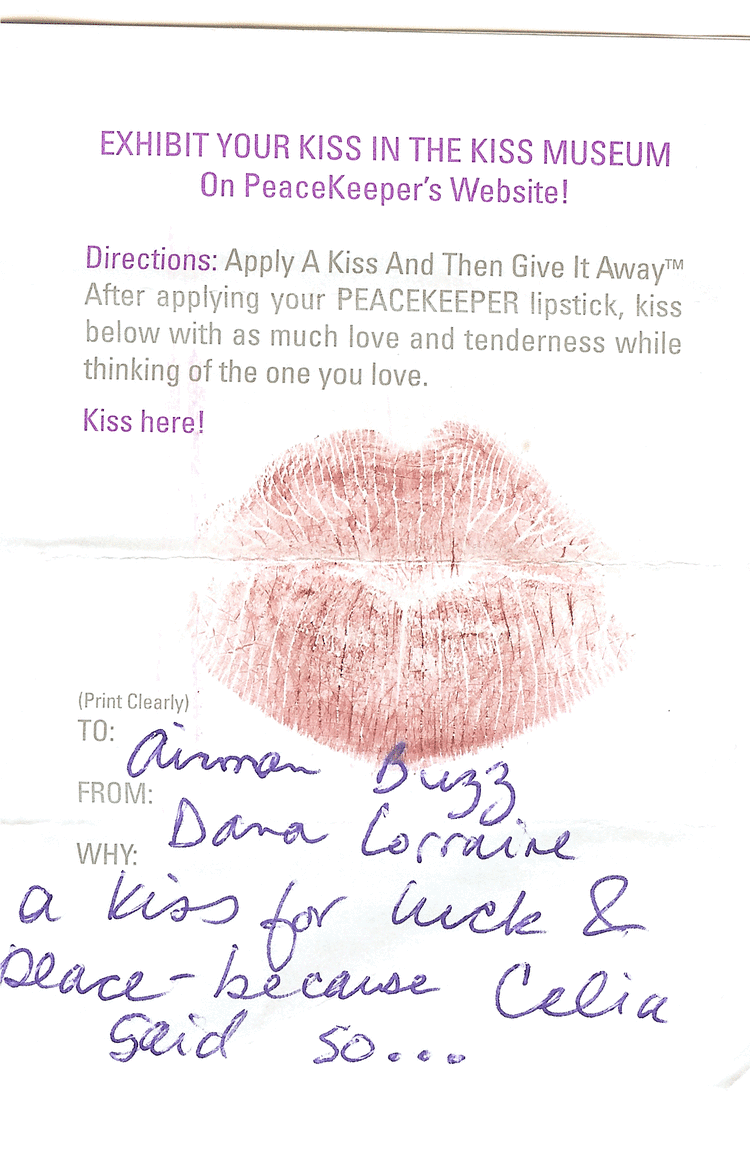 EXHIBIT YOUR KISS IN THE KISS MUSEUM
On PeaceKeeper's Website!
Directions: Apply A Kiss And Then Give It Away™
After applying your PEACEKEEPER lipstick, kiss
below with as much love and tenderness while
thinking of the one you love.
Kiss here!
(Print Clearly)
TO: Airman Buzz
FROM: Dana Lorraine
WHY:
a kiss for luck &
peace - because Celia
said so...